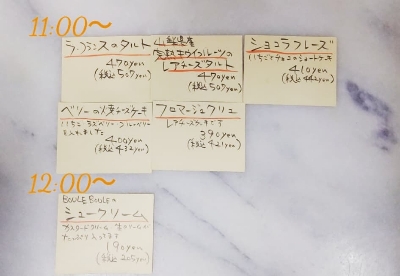 11:00〜
ラ・フランスのタルト
470yen
(税込507yen)
山梨県産
完熟キウイフルーツの
レアチーズタルト
470yen
(税込507yen)
ショコラフレーズ
いちごとチョコのショートケーキ
410yen
(税込442yen)
ベリーの焼チーズケーキ
いちご・ラズベリー・ブルーベリー
を入れました
400yen
(税込432yen)
フロマージュクリュ
レアチーズケーキです
390yen
(税込421yen)
12:00〜
BOULE BOULEの
シュークリーム
カスタードクリーム
190yen
(税込205yen)